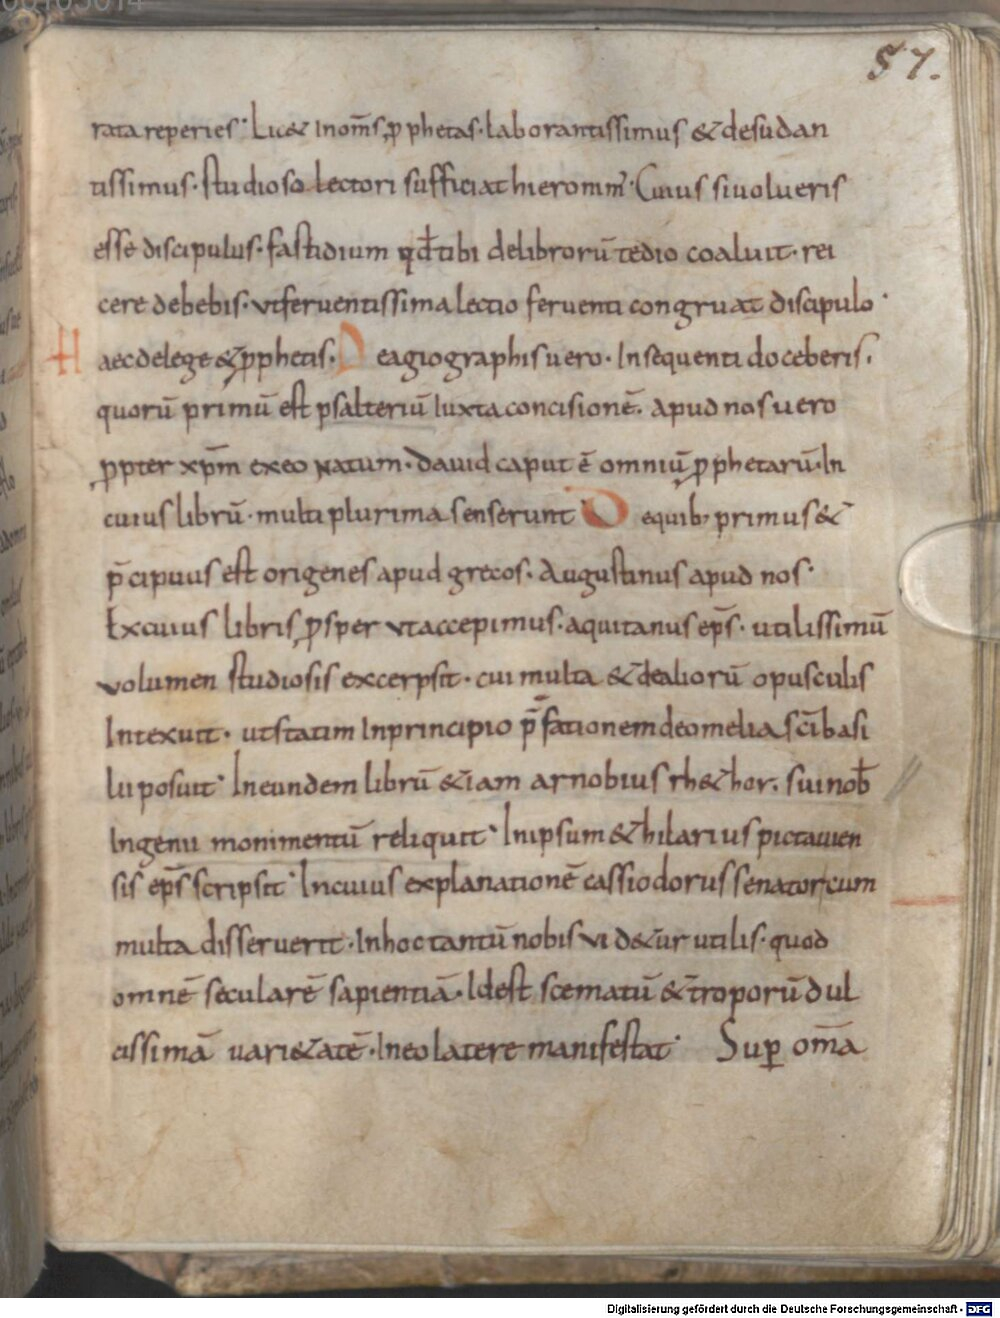 57.
rata reperies· Lic& inom̄s p̱phetas· laborantissimus &desudan
tissimus· studioso lectori sufficiat hieronim̄· Cuius siuolueris
esse discipulus· fastidium qđtibi delibrorū tedio coaluit· rei
cere debebis· utferuentissima lectio feruenti congruat discipulo·
Haec delege &p̱phetis· Deagiographis uero· Insequenti doceberis·
quorū primū est psalteriū Iuxta concisionē· apud nos uero
p̱pter xp̄m exeo natum· dauid caput ē omniū p̱phetarū· In
cuius librū· multi plurima senserunt· Dequib; primus &
p̄cipuus est origenes apud grecos· Augustinus apud nos·
Excuius libris p̱sper utaccepimus· aquitanus ep̄s· utilissimū
volumen studiosis excerpsit· cui multa &dealiorū opusculis
Intexuit· utstatim Inprincipio p̄fationem deomelia sc̄i basi
lii posuit· Ineundem librū &iam arnobius rh&hor· sui nob̄
Ingenii monimentū reliquit· Inipsum &hilarius pictauien
sis ep̄s scripsit· Incuius explanationē cassiodorus senator cum
multa disseruerit· Inhoc tantū nobis uid&ur utilis· quod
omnē secularē sapientiā· Idest scematū &troporū dul
cissimā uari&atē· Ineo latere manifestat· Sup om̄a
Digitalisierung gefördert durch die Deutsche Forschungsgemeinschaft - DFG